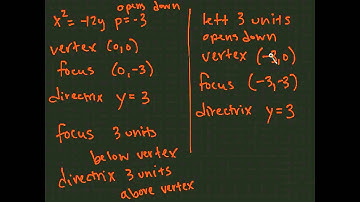 opens down
x² = -12y p = -3
vertex (0,0)
focus (0,-3)
directrix y = 3
focus 3 units
below vertex
directrix 3 units
above vertex
left 3 units
opens down
vertex (-3,0)
focus (-3,-3)
directrix y = 3